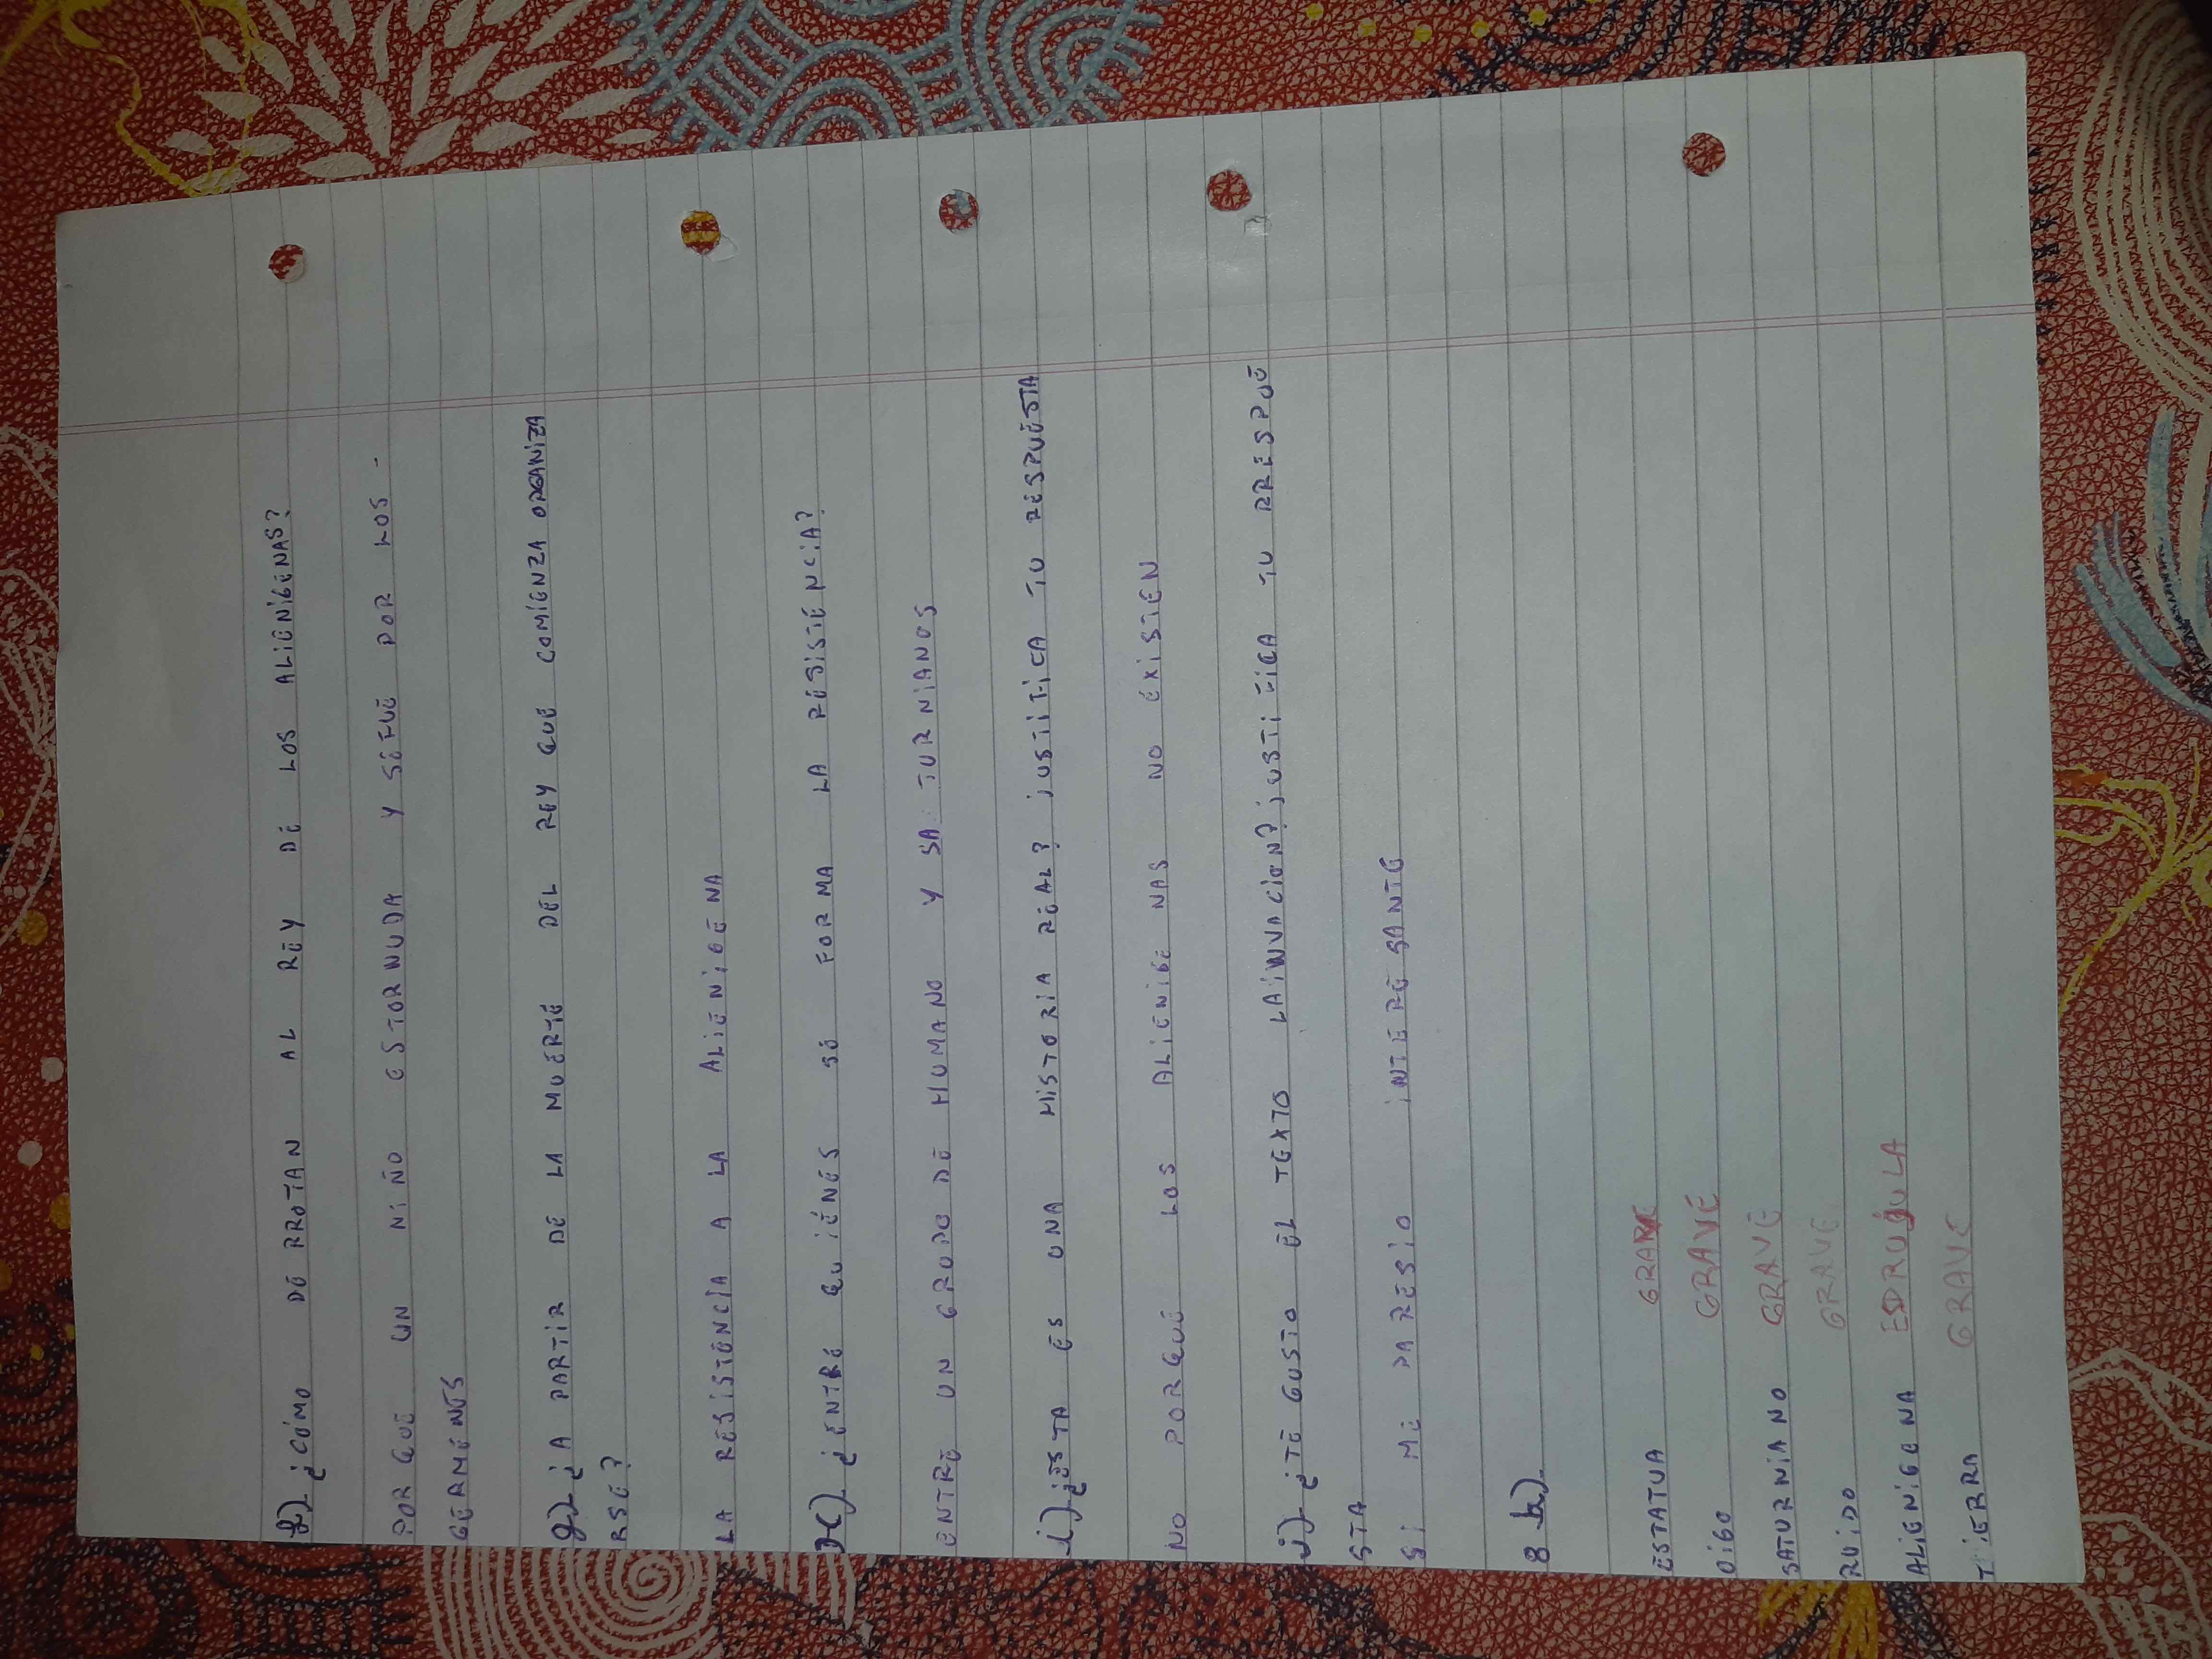 f) ¿CÓMO DERROTAN AL REY DE LOS ALIENIGENAS?
POR QUE UN NIÑO ESTORNUDA Y SEFUE POR LOS -
GERMENES
g) ¿A PARTIR DE LA MUERTE DEL REY QUE COMIENZA ORGANIZA
RSE?
LA RESISTENCIA A LA ALIENIGENA
H) ¿ENTRE QUIÉNES SE FORMA LA RESISTENCIA?
ENTRE UN GRUPO DE HUMANO Y SATURNIANOS
i) ¿ESTA ES UNA HISTORIA REAL? JUSTIFICA TU RESPUESTA
NO PORQUE LOS ALIENIGENAS NO EXISTEN
j) ¿TE GUSTO EL TEXTO LAINVACION? JUSTIFICA TU RRESPUE
STA
SI ME PARESIO INTERESANTE
8 b)
ESTATUA GRAVE
OIGO GRAVE
SATURNIANO GRAVE
RUIDO GRAVE
ALIENIGENA ESDRUJULA
TIERRA GRAVE